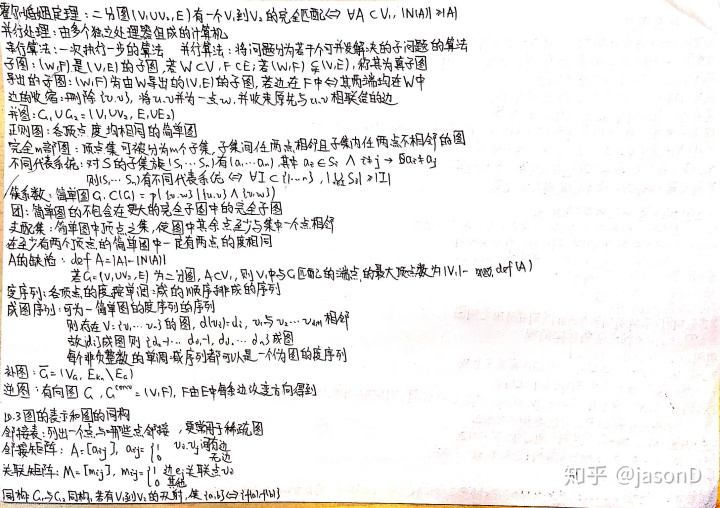 霍尔婚姻定理：二分图(V₁∪V₂,E)有一个V₁到V₂的完全匹配⇔∀A⊂V₁, |N(A)|≥|A|
并行处理：由多个独立处理器组成的计算机
串行算法：一次执行一步的算法 并行算法：将问题分为若干个可并发解决的子问题的算法
子图：(W,F)是(V,E)的子图,若W⊂V,F⊂E;若(W,F)⊊(V,E),称其为真子图
导出的子图：(W,F)为由W导出的(V,E)的子图,若边在F中⇔其两端均在W中
边的收缩：删除{u,v},将u,v并为一点w,并收集原先与u,v相联径的边
并图：G₁∪G₂=(V₁∪V₂,E₁∪E₂)
正则图：各顶点度均相同的简单图
完全m部图：顶点集可被分为m个子集,子集间任两点相邻且子集内任两点不相邻的图
不同代表系统：对S的子集族{S₁…Sₙ}有{a₁…aₙ},其中aᵢ∈Sᵢ∧i≠j→aᵢ≠aⱼ
则{S₁…Sₙ}有不同代表系统⇔∀I⊂{1…n},|∪Sᵢ|≥|I|
集系数：简单图G,C(G)=p({u,w}|{u,v}∧{v,w})
团：简单图的不包含在更大的完全子图中的完全子图
支配集：简单图中顶点之集,使图中其余点至少与集中一个点相邻
在至少有两个顶点的简单图中一定有两点的度相同
A的缺陷：def A=|A|-|N(A)|
若G=(V₁∪V₂,E)为二分图,A⊂V₁,则V₁中与G匹配的端点的最大顶点数为|V₁|-max def(A)
度序列：各顶点的度按单调减的顺序排成的序列
成图序列：可为一简单图的度序列的序列
则存在V={v₁…vₙ}的图,d(vᵢ)=dᵢ,v₁与v₂…相邻
故{dᵢ}成图则
每个非负整数的单调减序列都可以是一个伪图的度序列
补图：
逆图：有向图G,Gᶜᵒⁿᵛ=(V,F),F由E中每条边改变方向得到
10.3图的表示和图的同构
邻接表：列出一个点与哪些点邻接,更常用于稀疏图
邻接矩阵：A=[aᵢⱼ],aᵢⱼ={1 vᵢ,vⱼ间有边
无边
关联矩阵：M=[mᵢⱼ],mᵢⱼ={1 边eⱼ关联点vᵢ
0 其他
同构 G₁与G₂同构,若有V₁到V₂的双射,使
知乎 @jasonD